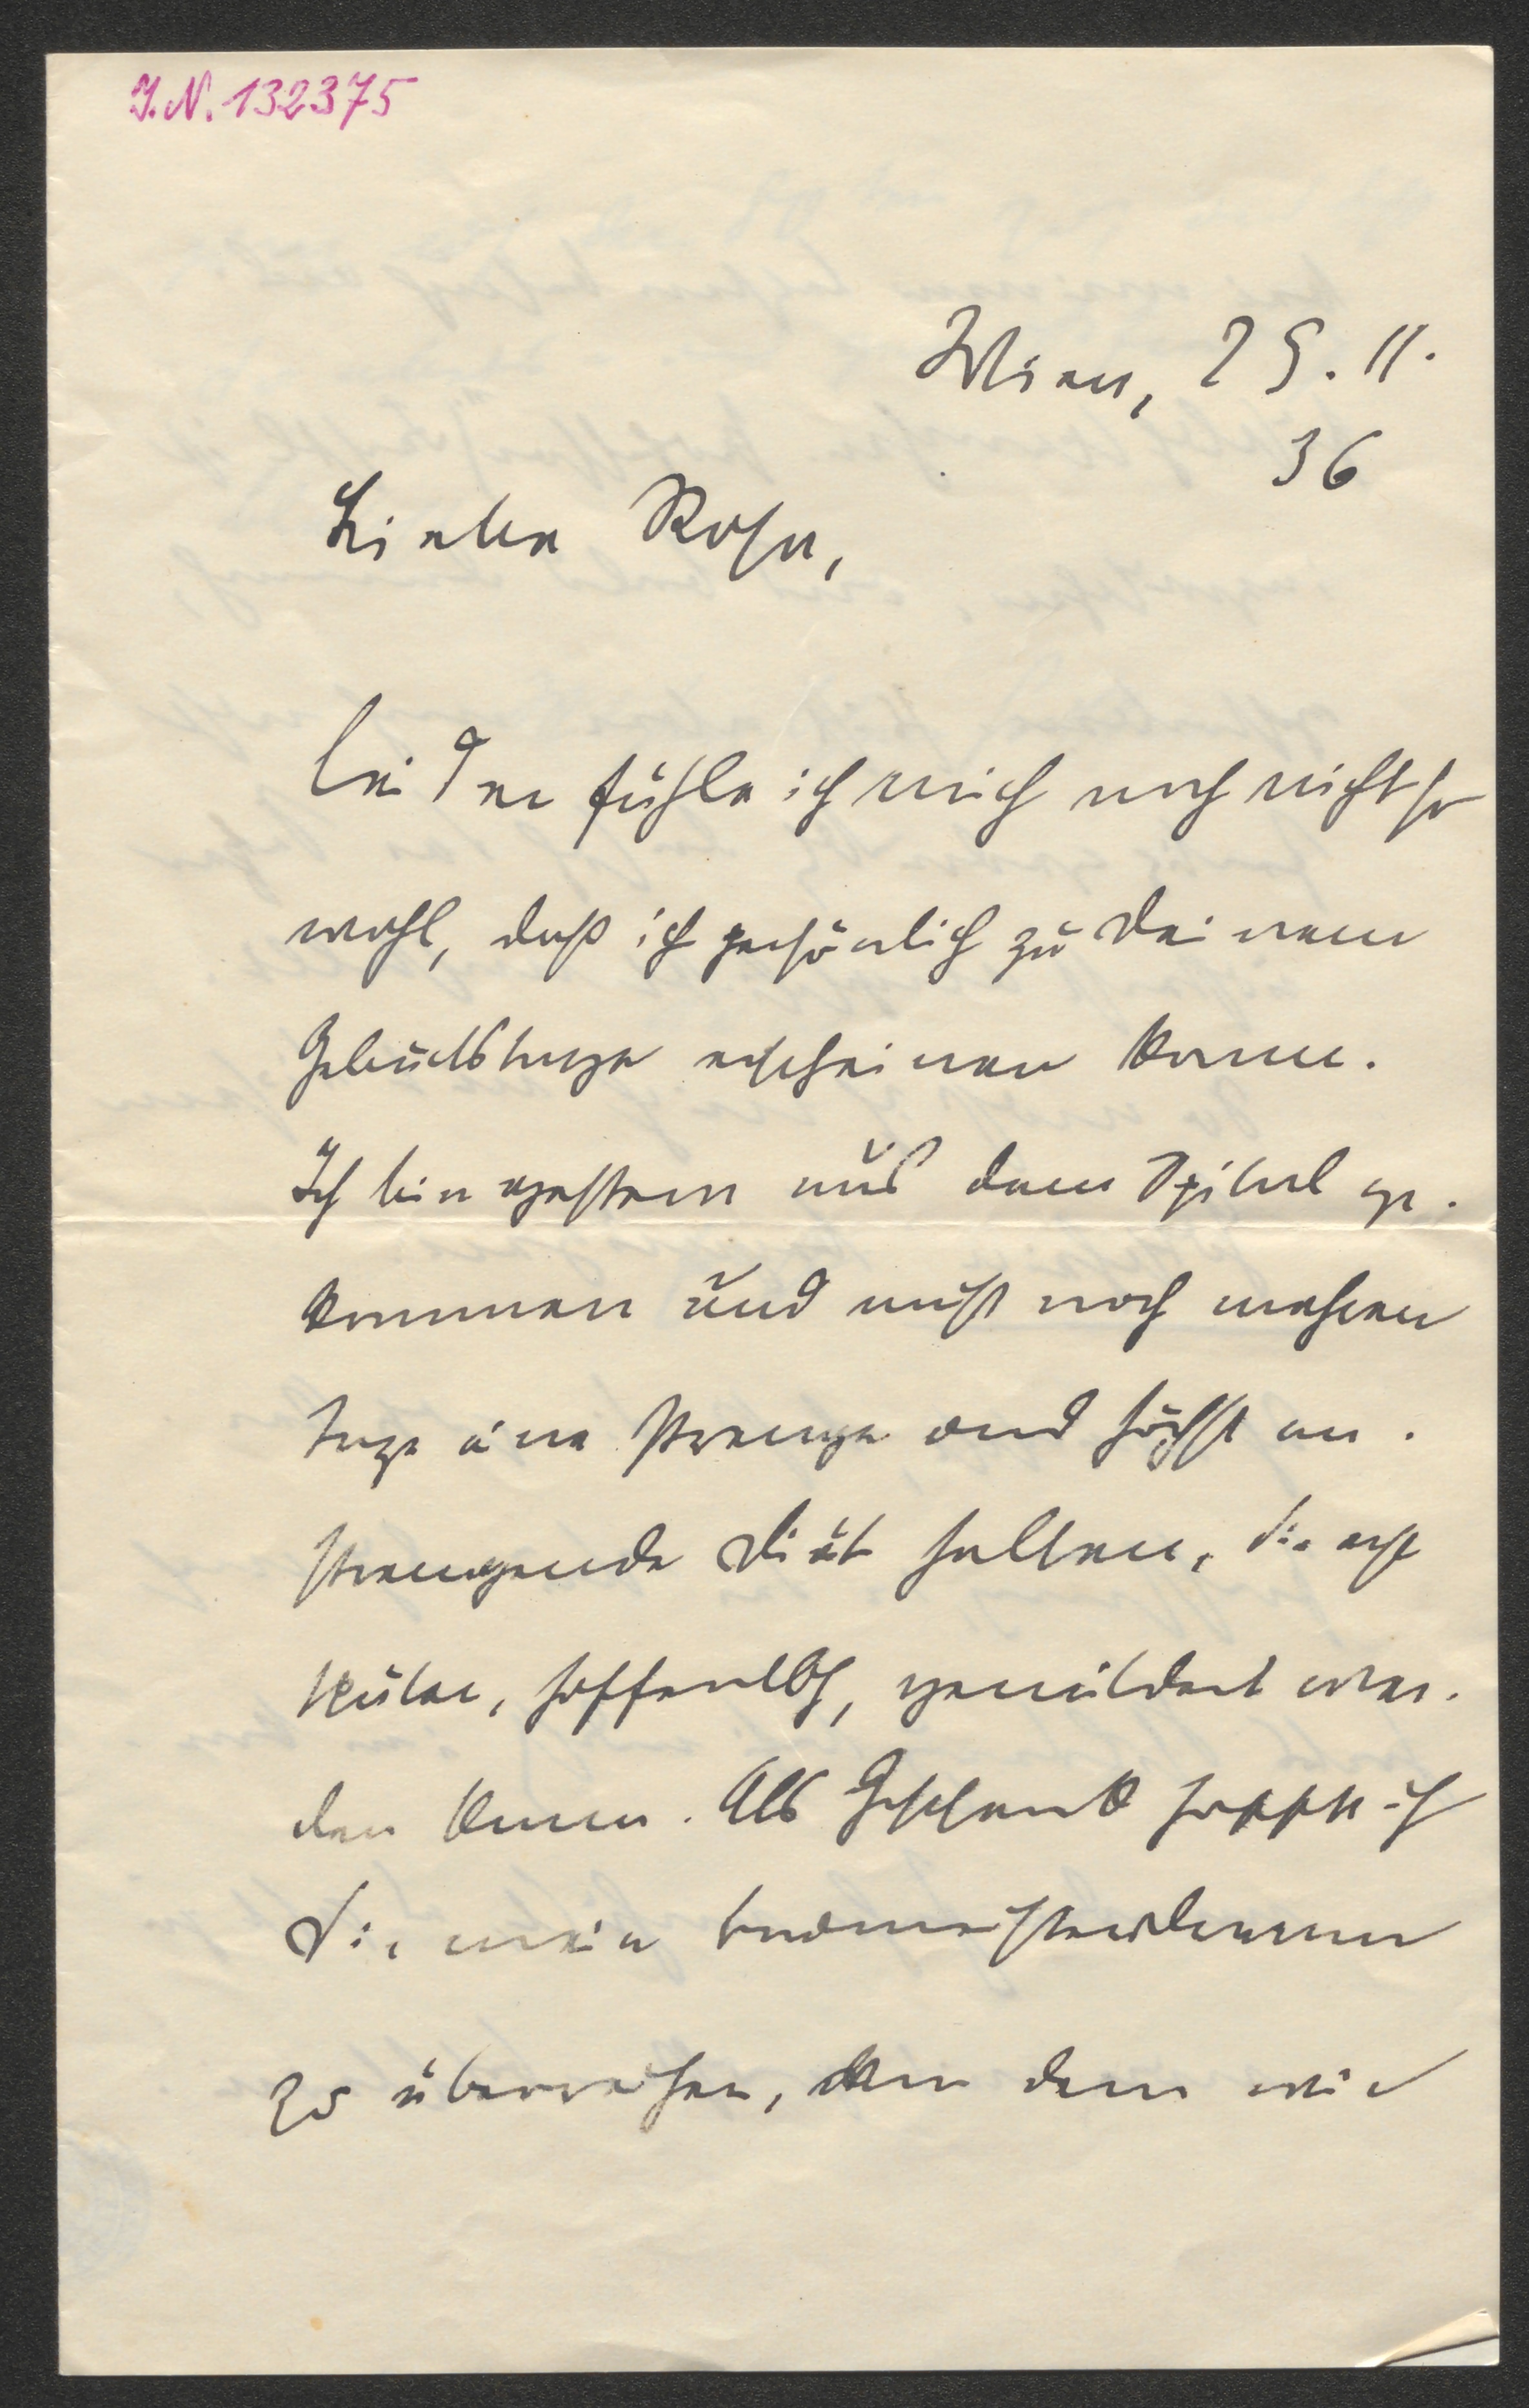 J.N. 132375
Wien, 25. 11.
36
Liebe Rosa,
leider fühle ich mich noch nicht so
wohl, daß ich persönlich zu Deinem
Geburtstage erscheinen kann.
Ich bin gestern aus dem Spital ge-
kommen und muß noch mehrere
Tage eine strenge und höchst an-
strengende Diät halten, die erst
später, hoffentlich, gemildert wer-
den kann. Als Geschenk hoffte ich
Dir mein
zu überreichen, von dem wir